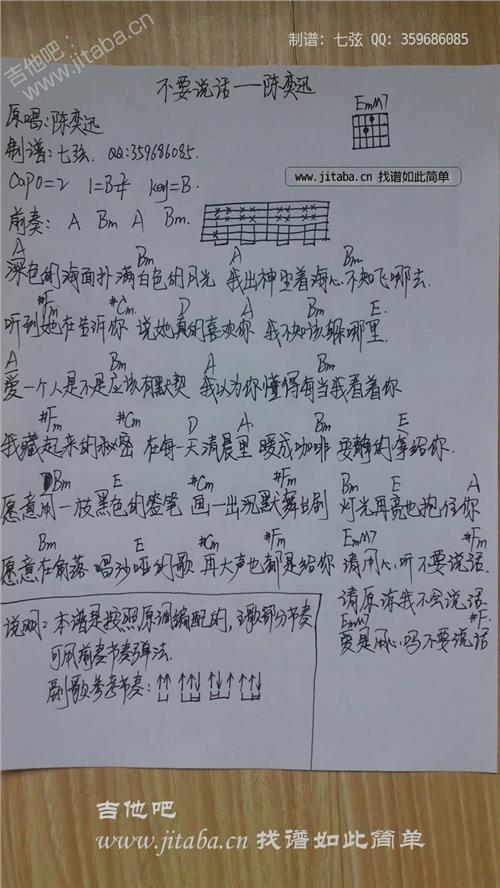 制谱：七弦 QQ：359686085
吉他吧：
www.jitaba.cn
不要说话——陈奕迅
EmM7
原唱：陈奕迅
制谱：七弦. QQ:359686085.
Capo=2 1=B4/4 key=B.
www.jitaba.cn 找谱如此简单
前奏： A Bm A Bm.
A Bm A Bm
深色的海面扑满白色的月光 我出神坐着海 心不知飞哪去.
#Fm #Cm D A Bm E.
听到她在告诉你 说她真的喜欢你 我不知该躲哪里.
A Bm A Bm
爱一个人是不是应该有默契 我以为你懂得每当我看着你
#Fm #Cm D A Bm E
我藏起来的秘密 在每一天清晨里 暖成咖啡 安静的拿给你.
Bm E #Cm #Fm Bm E A
愿意用一枝黑色的签笔 画一出沉默舞台剧 灯光再亮也抱住你
Bm E #Cm #Fm EmM7 A
愿意在角落 唱沙哑的歌 再大声也都是给你 请用心听 不要说话.
请原谅我不会说话
EmM7 #F.
爱是用心吗不要说话
说明：本谱是按照原调编配的，主歌部分节奏
可用前奏节奏弹法.
副歌参考节奏：↑↑ ↑↑↓ ↓↑ ↑↑↓
吉他吧
www.jitaba.cn 找谱如此简单